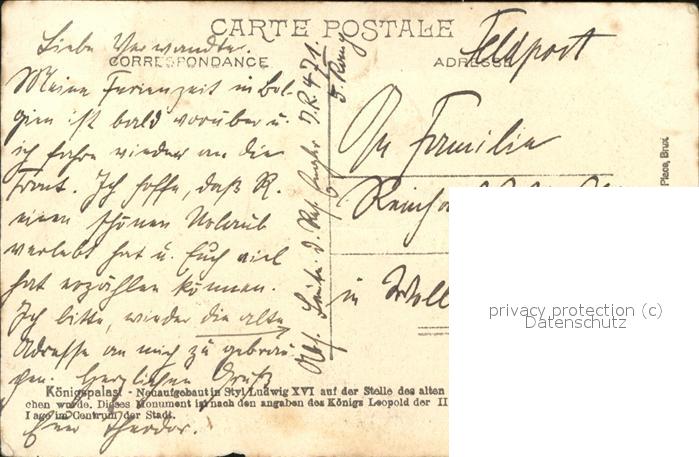 CARTE POSTALE
CORRESPONDANCE
ADRESSE
Feldpost
Liebe Verwandte.
Meine Ferienzeit in Bel-
gien ist bald vorüber u.
ich fahre wieder an die
Front. Ich hoffe, daß R.
einen schönen Urlaub
verlebt hat u. Euch viel
hat erzählen können.
Ich bitte, wieder die alte
Adresse an mich zu gebrau-
chen. Herzlichen Gruß
Euer Theodor.
Abs. d. Res. I.R. 471
5. Komp
An Familie
in
Königspalast - Neuaufgebaut in Styl Ludwig XVI auf der Stelle des alten
chen wurde. Dieses Monument ist nach den angaben des Königs Leopold der II
Lage im Centrum der Stadt.
Place, Brux
privacy protection (c)
Datenschutz